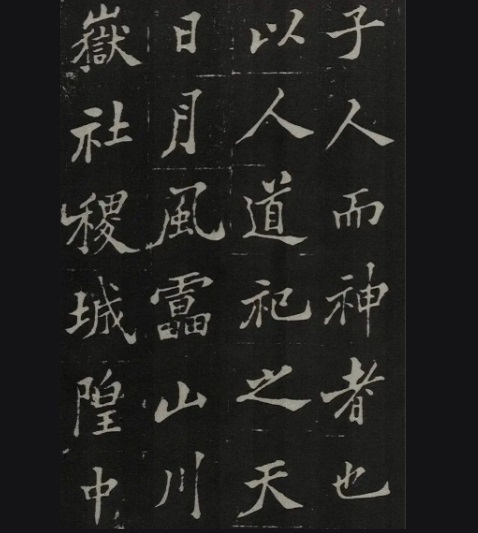 子人而神者也
以人道祀之天
日月風靁山川
嶽社稷城隍中